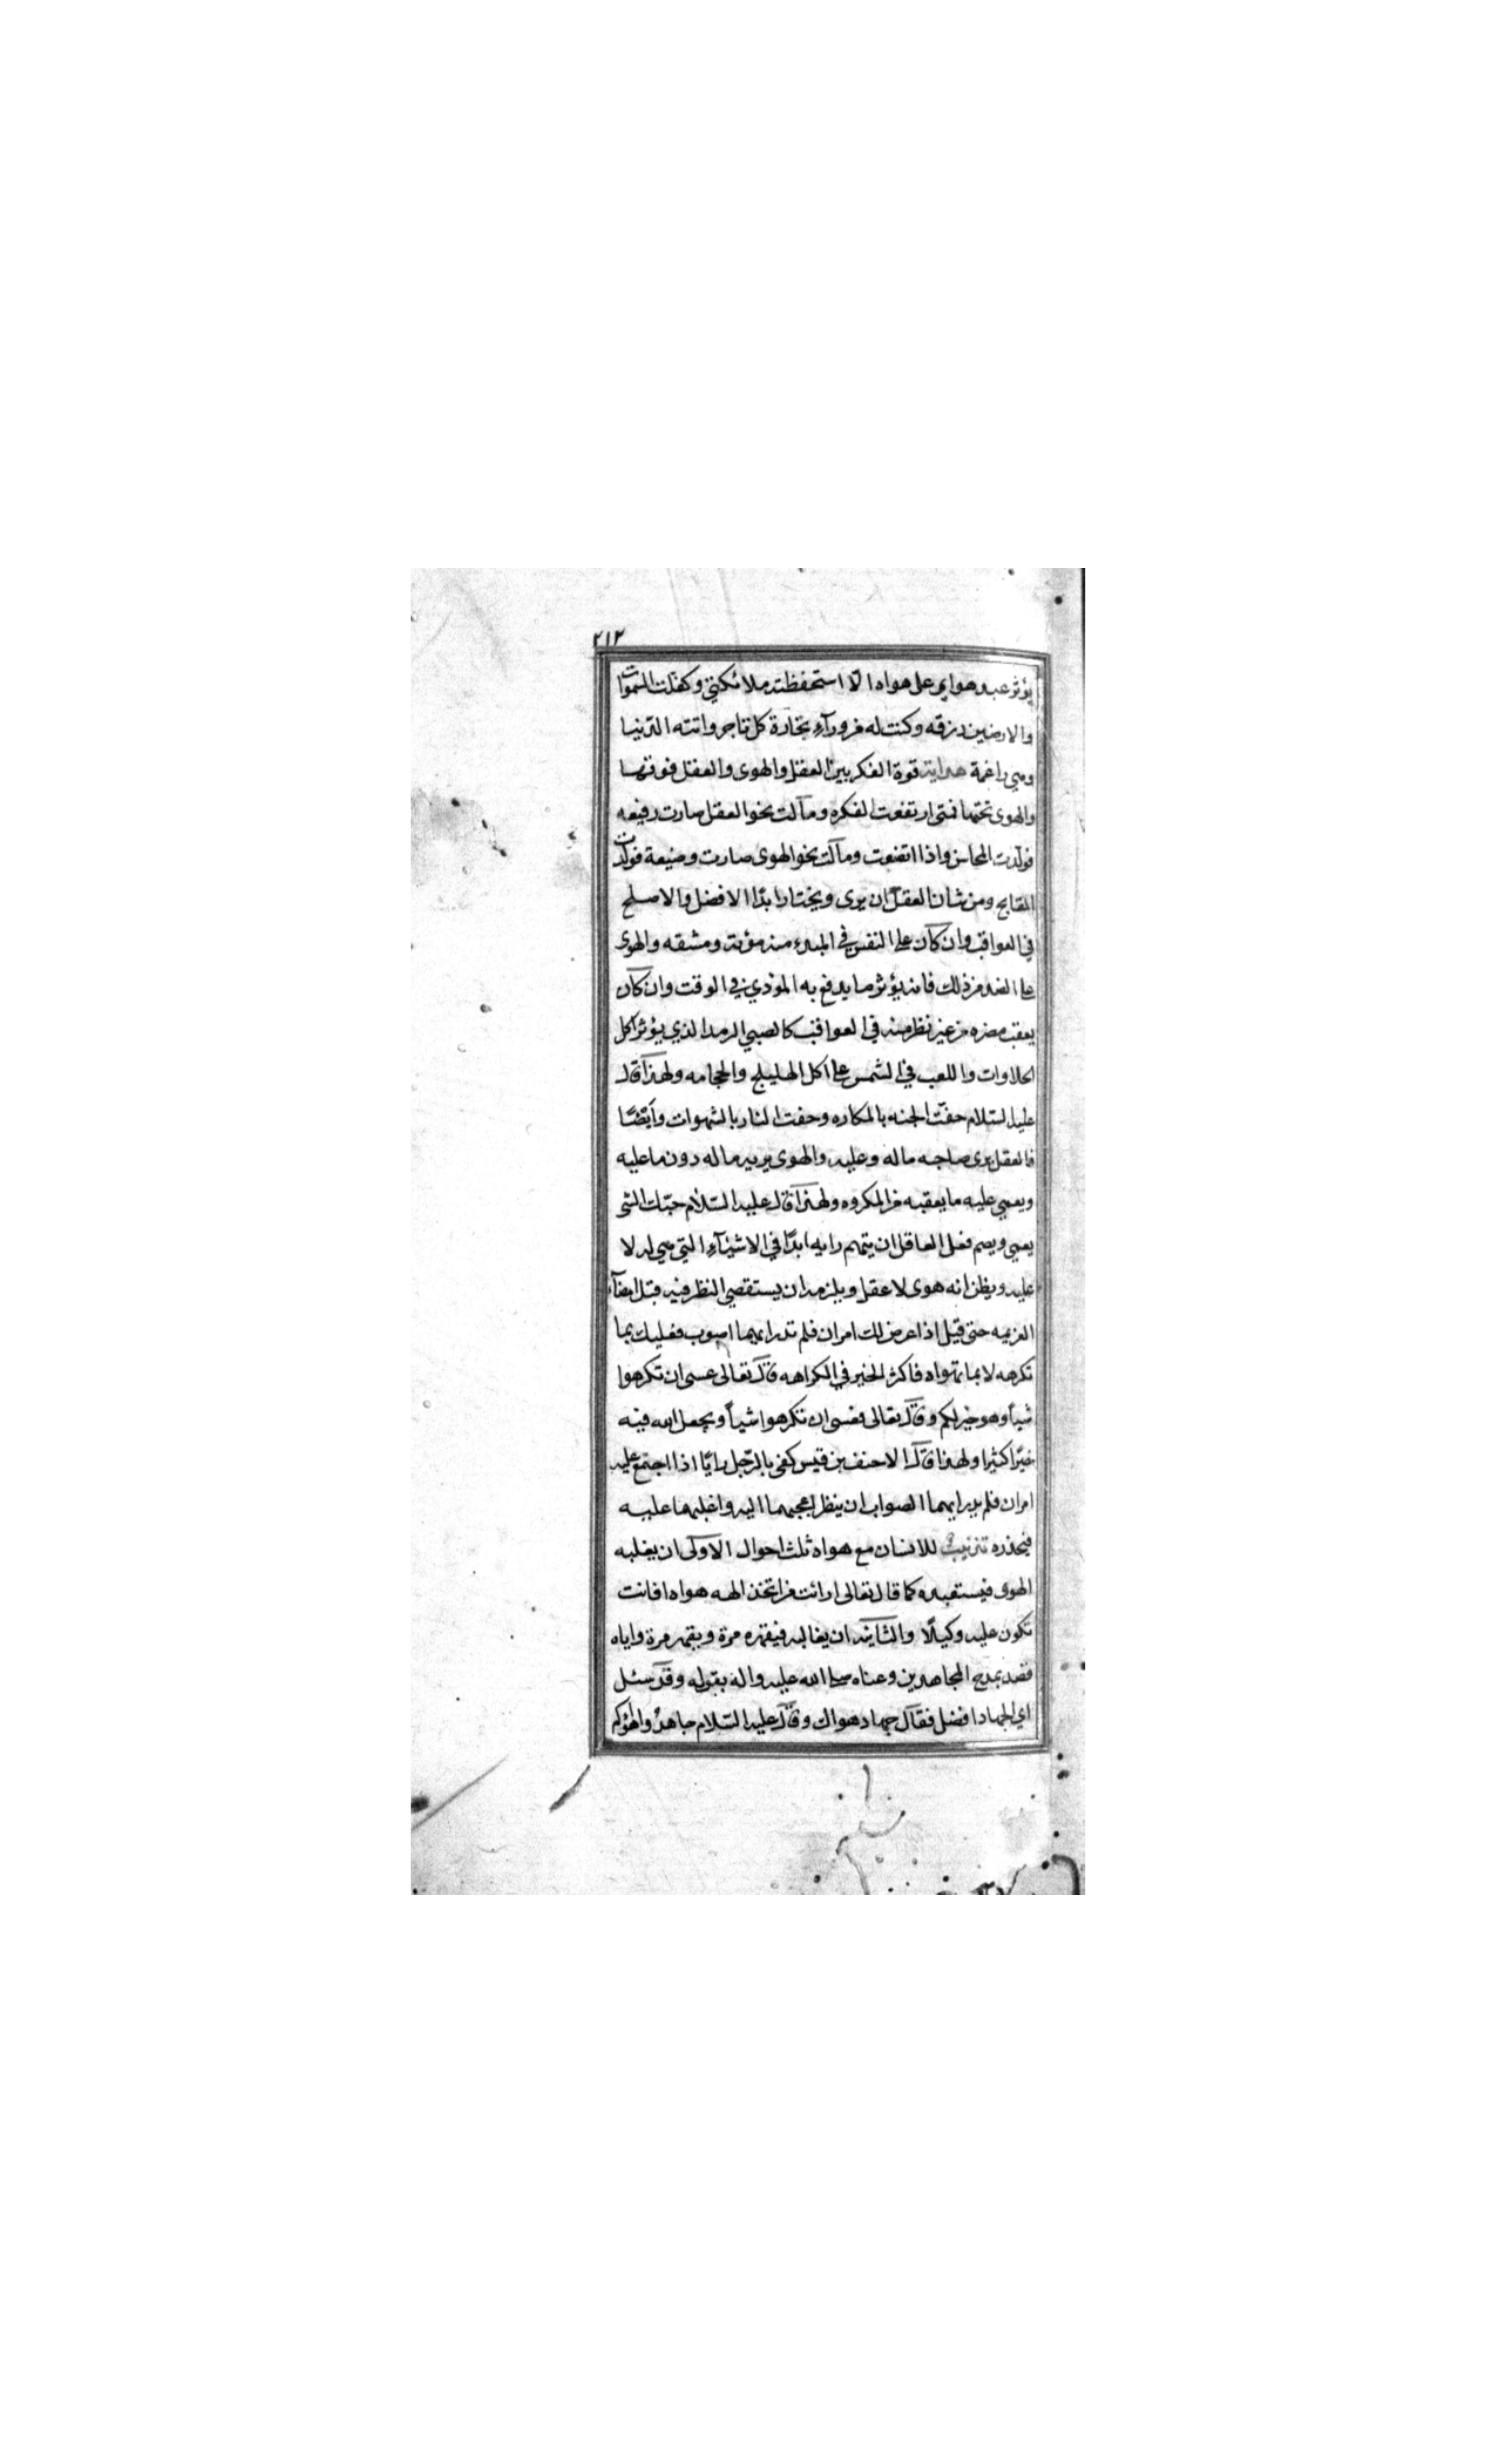 ٢١٢
يؤثر عبد هواي على هواه الا استحفظته ملائكتي وكفلت السموات
والارضين رزقه وكنت له من وراء تجارة كل تاجر واتته الدنيا
وهي راغمة هداية قوة الفكر بين العقل والهوى والعقل فوقها
والهوى تحتها فمتى ارتفعت الفكره ومالت نحو العقل صارت رفيعه
فولدت المحاسن واذا اتضعت ومالت نحو الهوى صارت وضيعة فولدت
المقابح ومن شان العقل ان يرى ويختار ابدا الافضل والاصلح
في العواقب وان كان على النفس في المبدء منه مؤنة ومشقه والهوى
على الضد من ذلك فانه يؤثر ما يدفع به الموذي في الوقت وان كان
يعقب مضره من غير نظر منه في العواقب كالصبي الرمد الذي يؤثر اكل
الحلاوات واللعب في الشمس على اكل الهليلج والحجامه ولهذا قال
عليه السلام حفت الجنه بالمكاره وحفت النار بالشهوات وايضا
فالعقل يرى صاحبه ماله وعليه والهوى يريه ماله دون ما عليه
ويعمي عليه ما يعقبه من المكروه ولهذا قال عليه السلام حبك الشي
يعمي ويصم فعلى العاقل ان يتهم رايه ابدا في الاشياء التي هي له لا
عليه ويظن انه هوى لا عقل ويلزمه ان يستقصي النظر فيه قبل امضاء
العزيمه حتى قيل اذا عرض لك امران فلم تدر ايهما اصوب فعليك بما
تكرهه لا بما تهواه فاكثر الخير في الكراهه قال تعالى عسى ان تكرهوا
شيأ وهو خير لكم وقال تعالى فعسى ان تكرهوا شيأ ويجعل الله فيه
خيرا كثيرا ولهذا قال الاحنف بن قيس كفى بالرجل رايا اذا اجتمع عليه
امران فلم يدر ايهما الصواب ان ينظر اعجبهما اليه واغلبهما عليه
فيحذره تذنيب للانسان مع هواه ثلث احوال الاولى ان يغلبه
الهوى فيستعبده كما قال تعالى ارائت من اتخذ الهه هواه افانت
تكون عليه وكيلا والثانيه ان يغالبه فيقهره مرة ويقهره مرة واياه
قصد بمدح المجاهدين وعناه صلى الله عليه واله بقوله وقد سئل
اي الجهاد افضل فقال جهاد هواك وقال عليه السلام جاهدوا اهوائكم